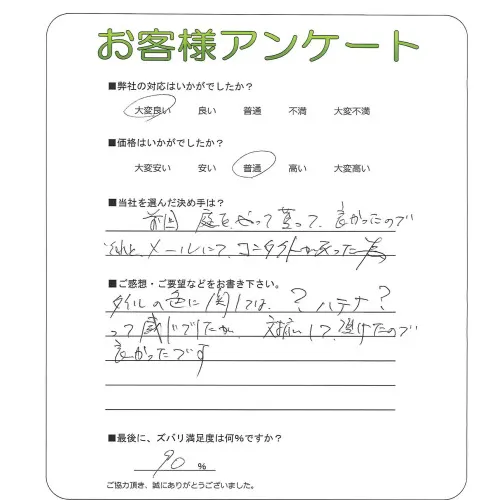 お客様アンケート
■弊社の対応はいかがでしたか?
大変良い 良い 普通 不満 大変不満
■価格はいかがでしたか?
大変安い 安い 普通 高い 大変高い
■当社を選んだ決め手は?
前回 庭をやって貰って、良かったので
それと、メールにて、コンタクトが取れた為
■ご感想・ご要望などをお書き下さい。
タイルの色に関しては、? ハテナ?
って感じでしたが、対応して頂けたので
良かったです
■最後に、ズバリ満足度は何%ですか?
90 %
ご協力頂き、誠にありがとうございました。